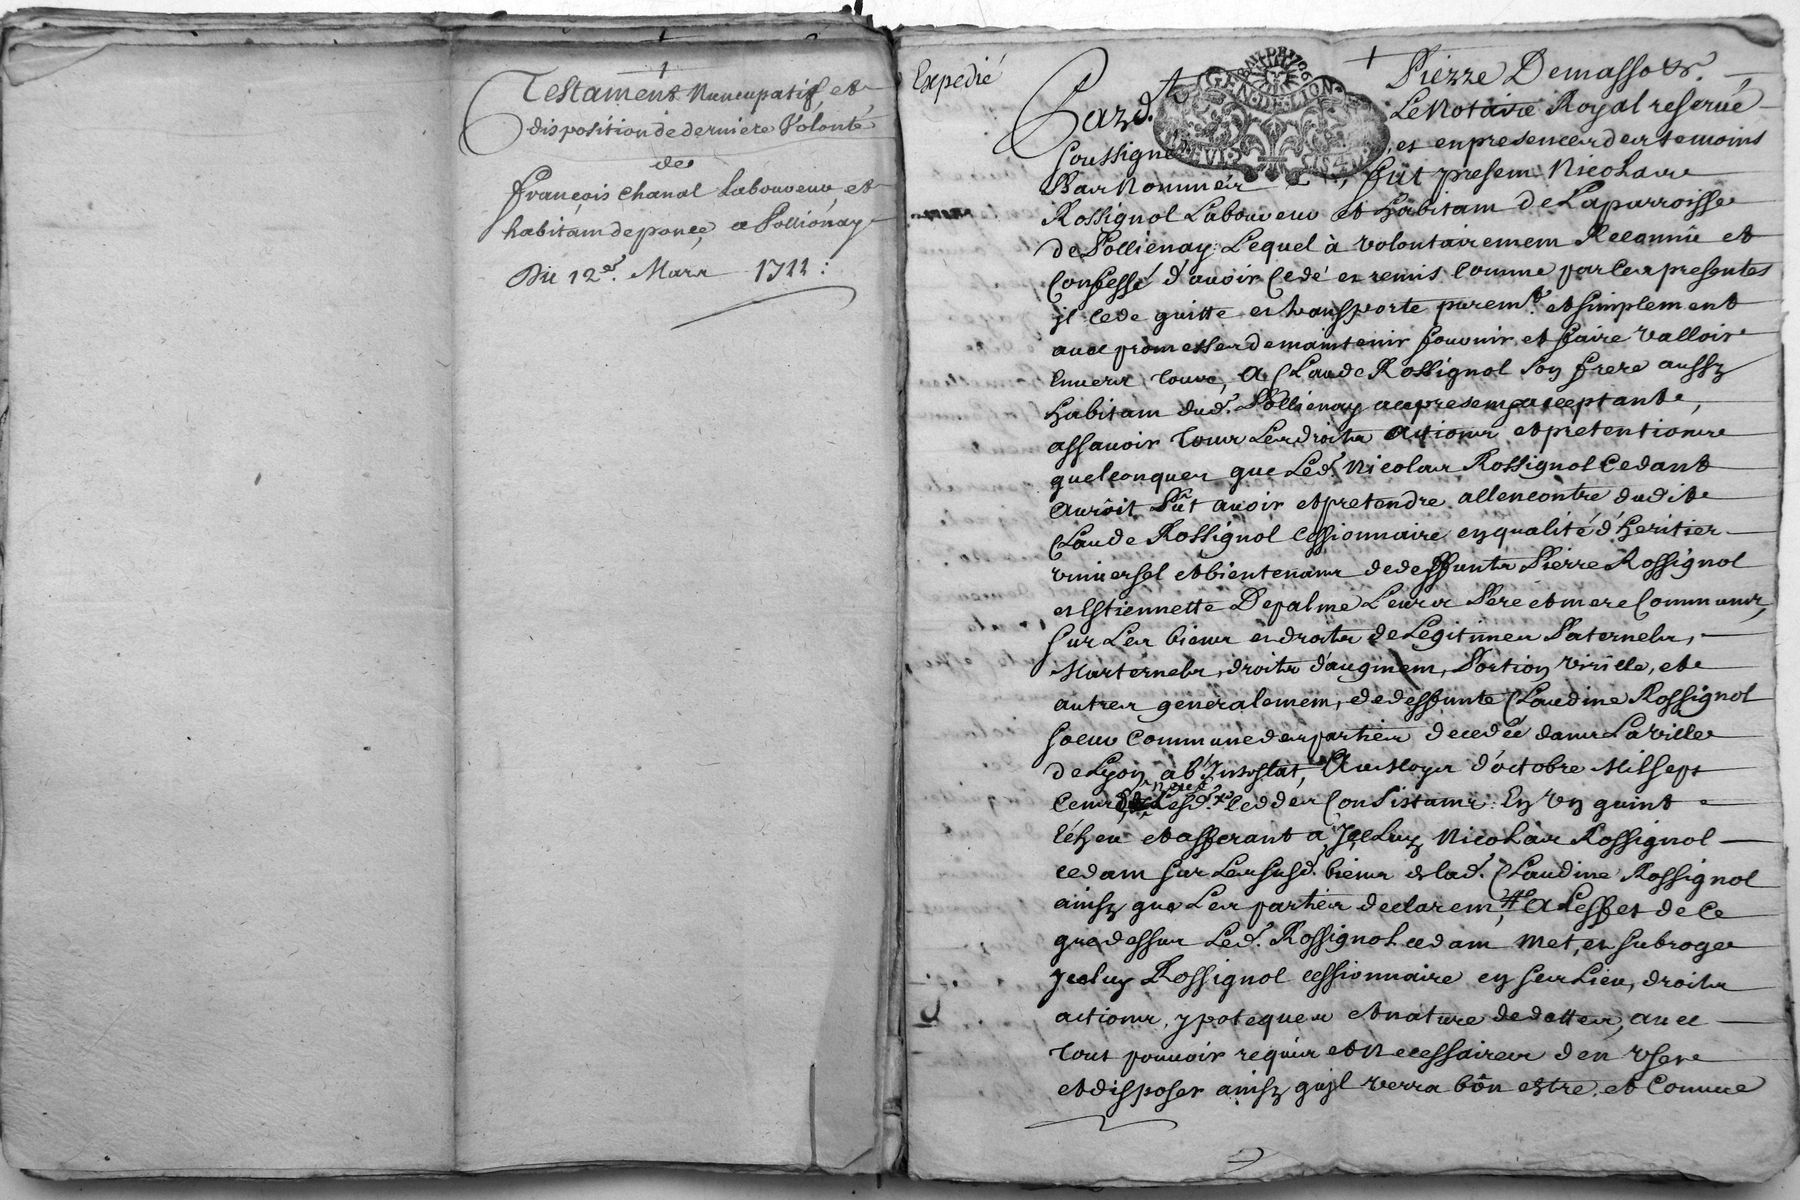 Testament Nuncupatif et
disposition de derniere Volonté
de
françois chanal Laboureur et
habitam de ponce, a Pollionay
Du 12e. Mars 1711:
Expedié
Pierre Demasso &c.
Pard.t Le Notaire Royal reservé
soussigné, et en presence des temoins
bas Nommés fut presem Nicolas
Rossignol Laboureur et habitam de La parroisse
de Pollienay Lequel à volontairemem Reconnû et
Confessé d'avoir Cedé et remis Comme par Les presentes
jl cede quitte et transporte purem.t et simplement
avec promesses de maintenir fournir et faire valloir
Envers tous, A Claude Rossignol son frere aussy
habitam dud. Pollienay acepresem, acceptant,
assavoir tous Les droits actions et pretentions
quelconques que Led. Nicolas Rossignol Cedant
auroit Pût avoir et pretendre allencontre dudit
Claude Rossignol Cessionnaire en qualité d'heritier
universel et bientenans de deffunts Pierre Rossignol
et Estiennette Depalme Leurs Pere et mere Communs,
sur Les biens et droits de Legitimes Paternels,
Maternels, droits d'augmem, Portion virille, et
autres generalemem, de deffunte Claudine Rossignol
soeur Commune des parties decedée dans La ville
de Lyon ab Intestat, Au Moys d'octobre Mil sept
Cems neuf Lesd. Consistans: En un quint
et afferant a Jceluy Nicolas Rossignol
cedam sur Les susd. biens de lad. Claudine Rossignol
ainsy que Les parties declarem, A Leffet de Ce
que dessus Led. Rossignol cedam Met, et subroge
jceluy Rossignol cessionnaire en ses Lieu, droits
actions, ypoteques et nature de dettes, avec
tout pouvoir requis et Necessaires d'en user
et disposer ainsy qu'jl verra bôn estre et Comme